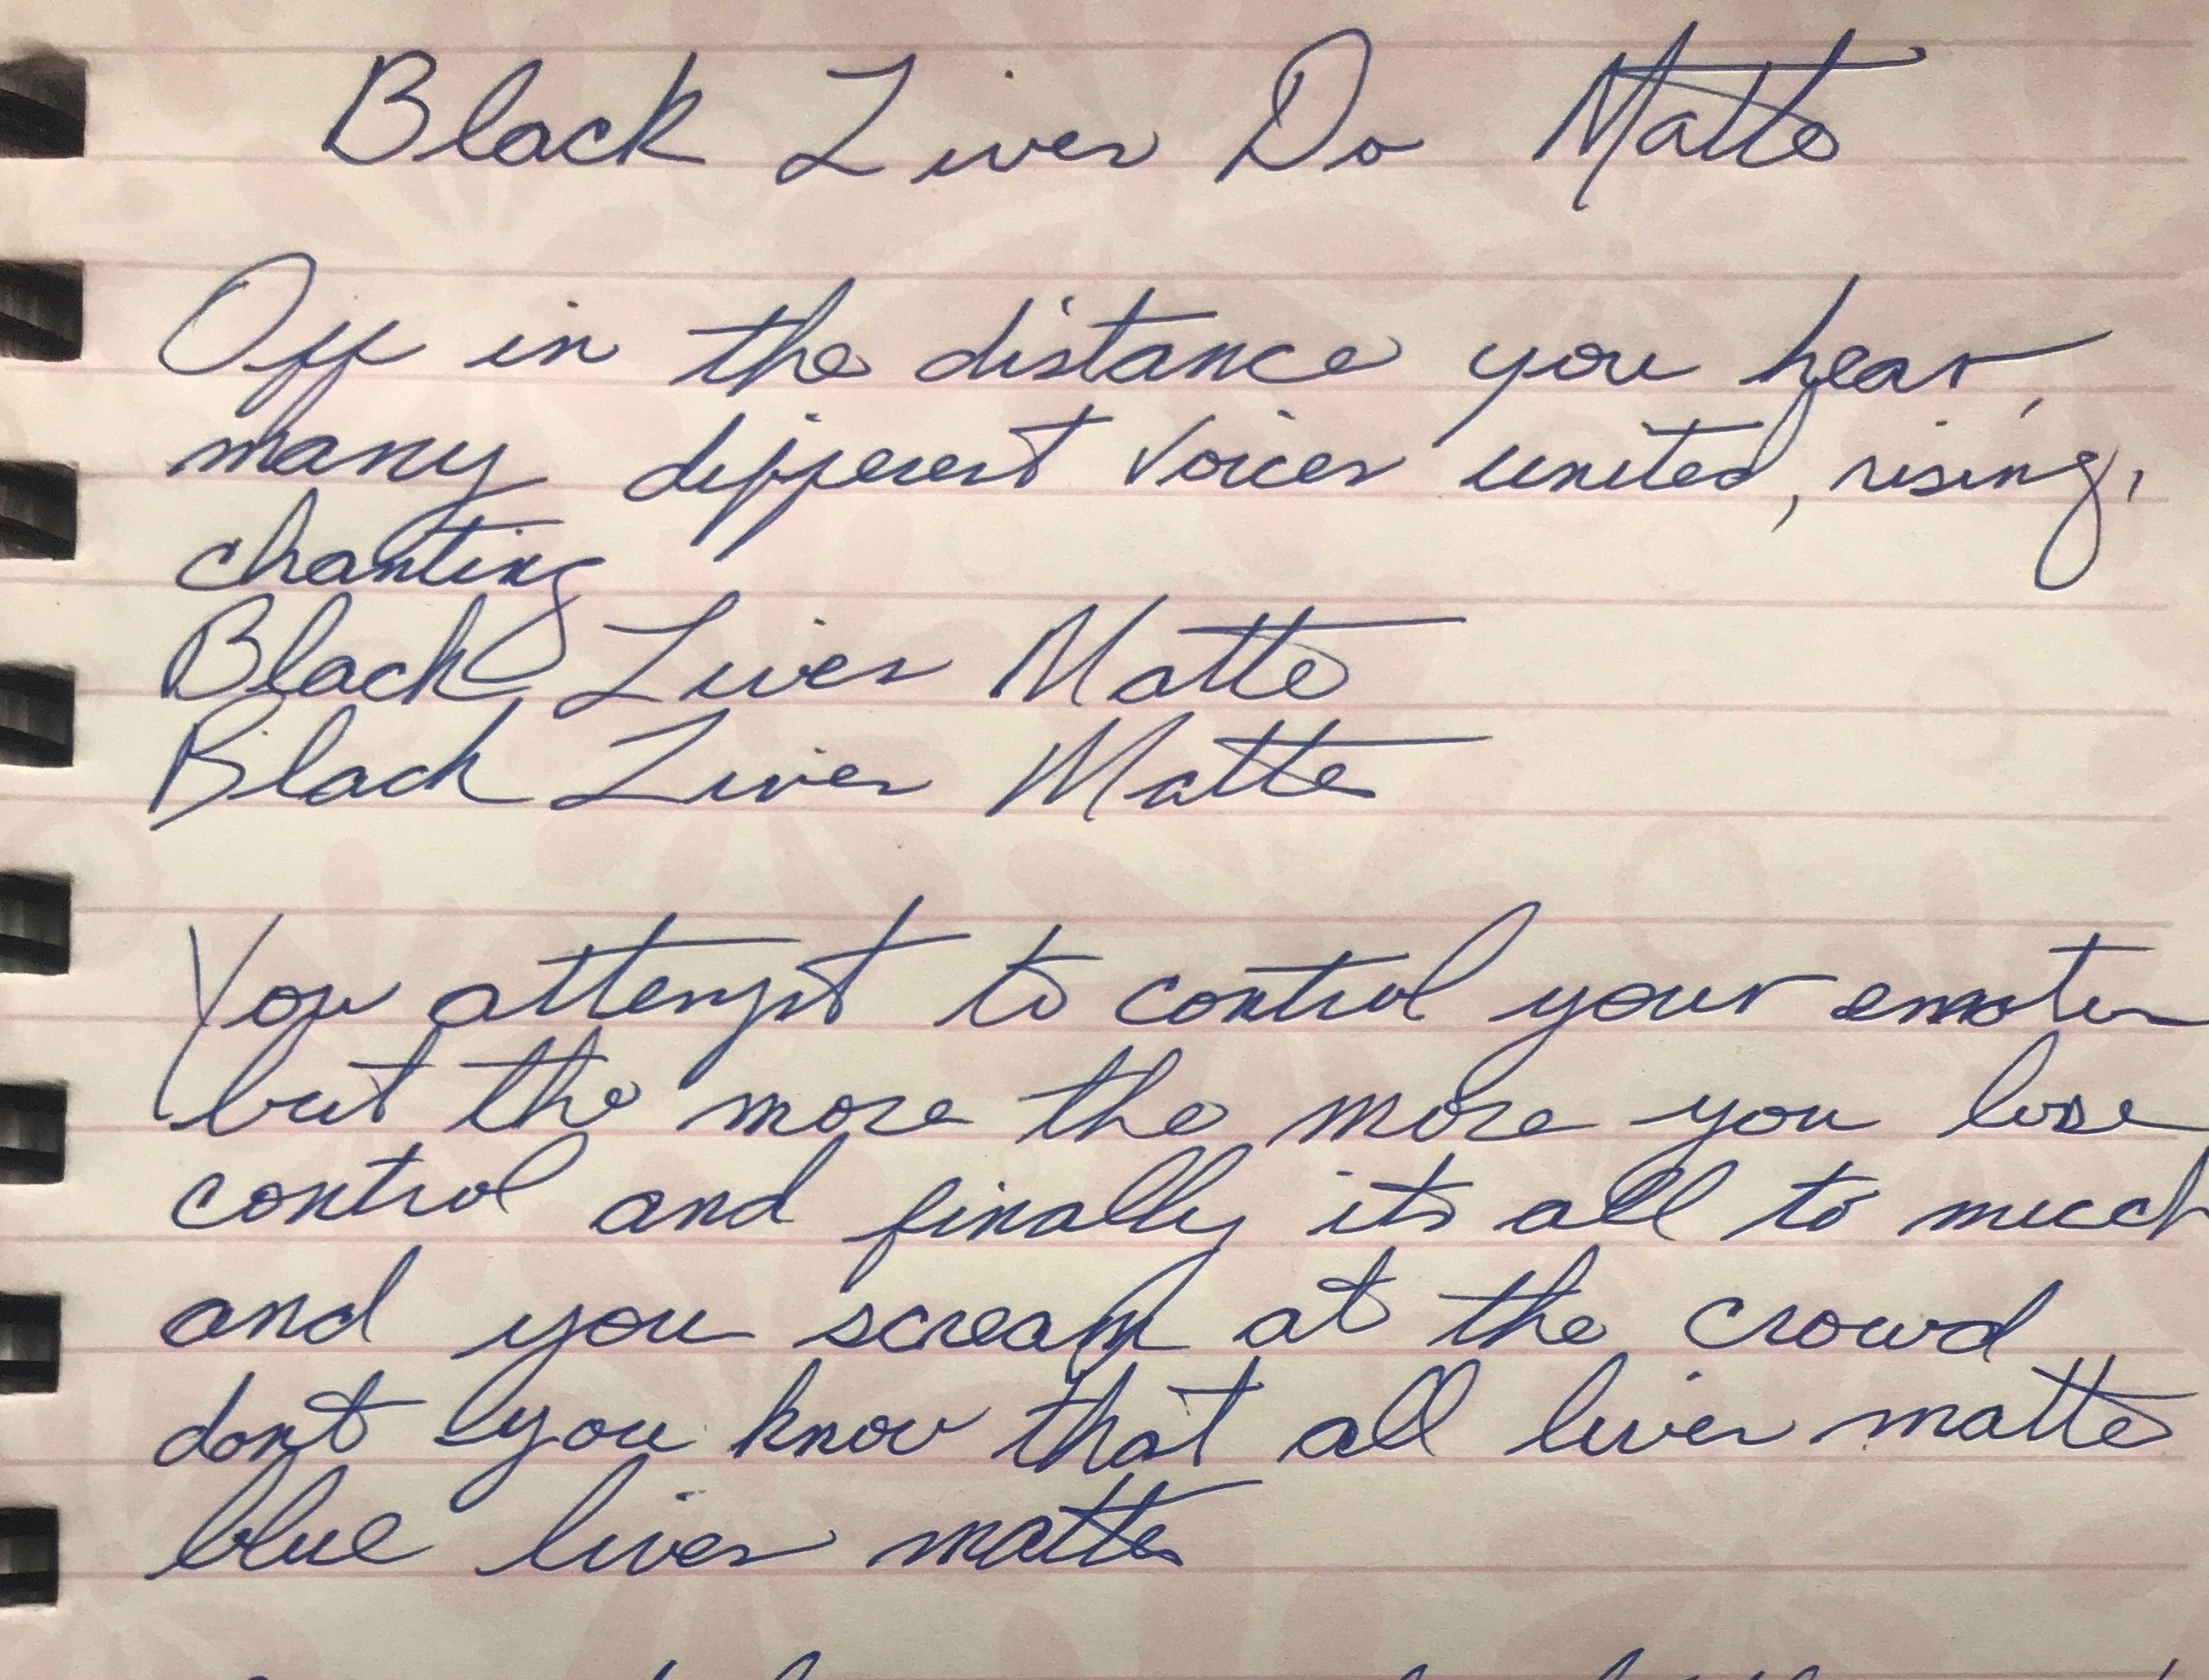 Black Lives Do Matter
Off in the distance you hear,
many different voices united, rising,
chanting
Black Lives Matter
Black Lives Matter
You attempt to control your emotion
but the more the more you lose
control and finally its all to much
and you scream at the crowd
dont you know that all lives matter
blue lives matter